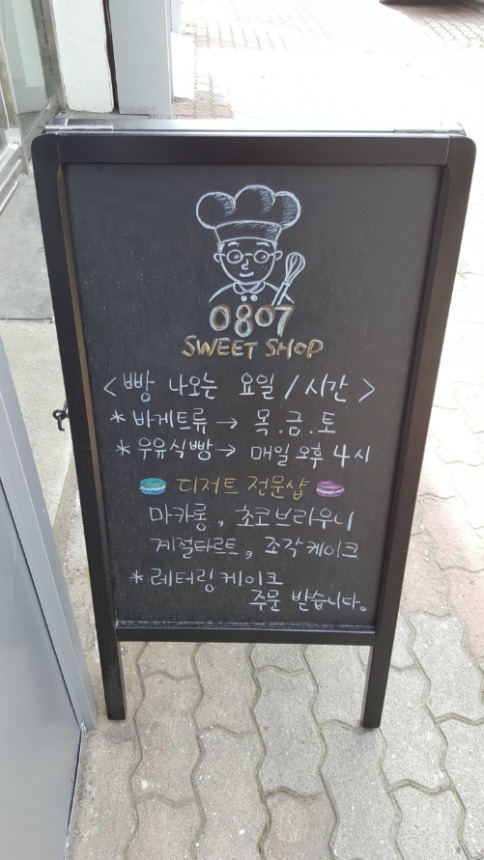 0807
SWEET SHOP
< 빵 나오는 요일 / 시간 >
* 바게트류 → 목.금.토
* 우유식빵 → 매일 오후 4시
디저트 전문샵
마카롱, 초코브라우니
계절타르트, 조각케이크
* 레터링케이크
주문 받습니다。